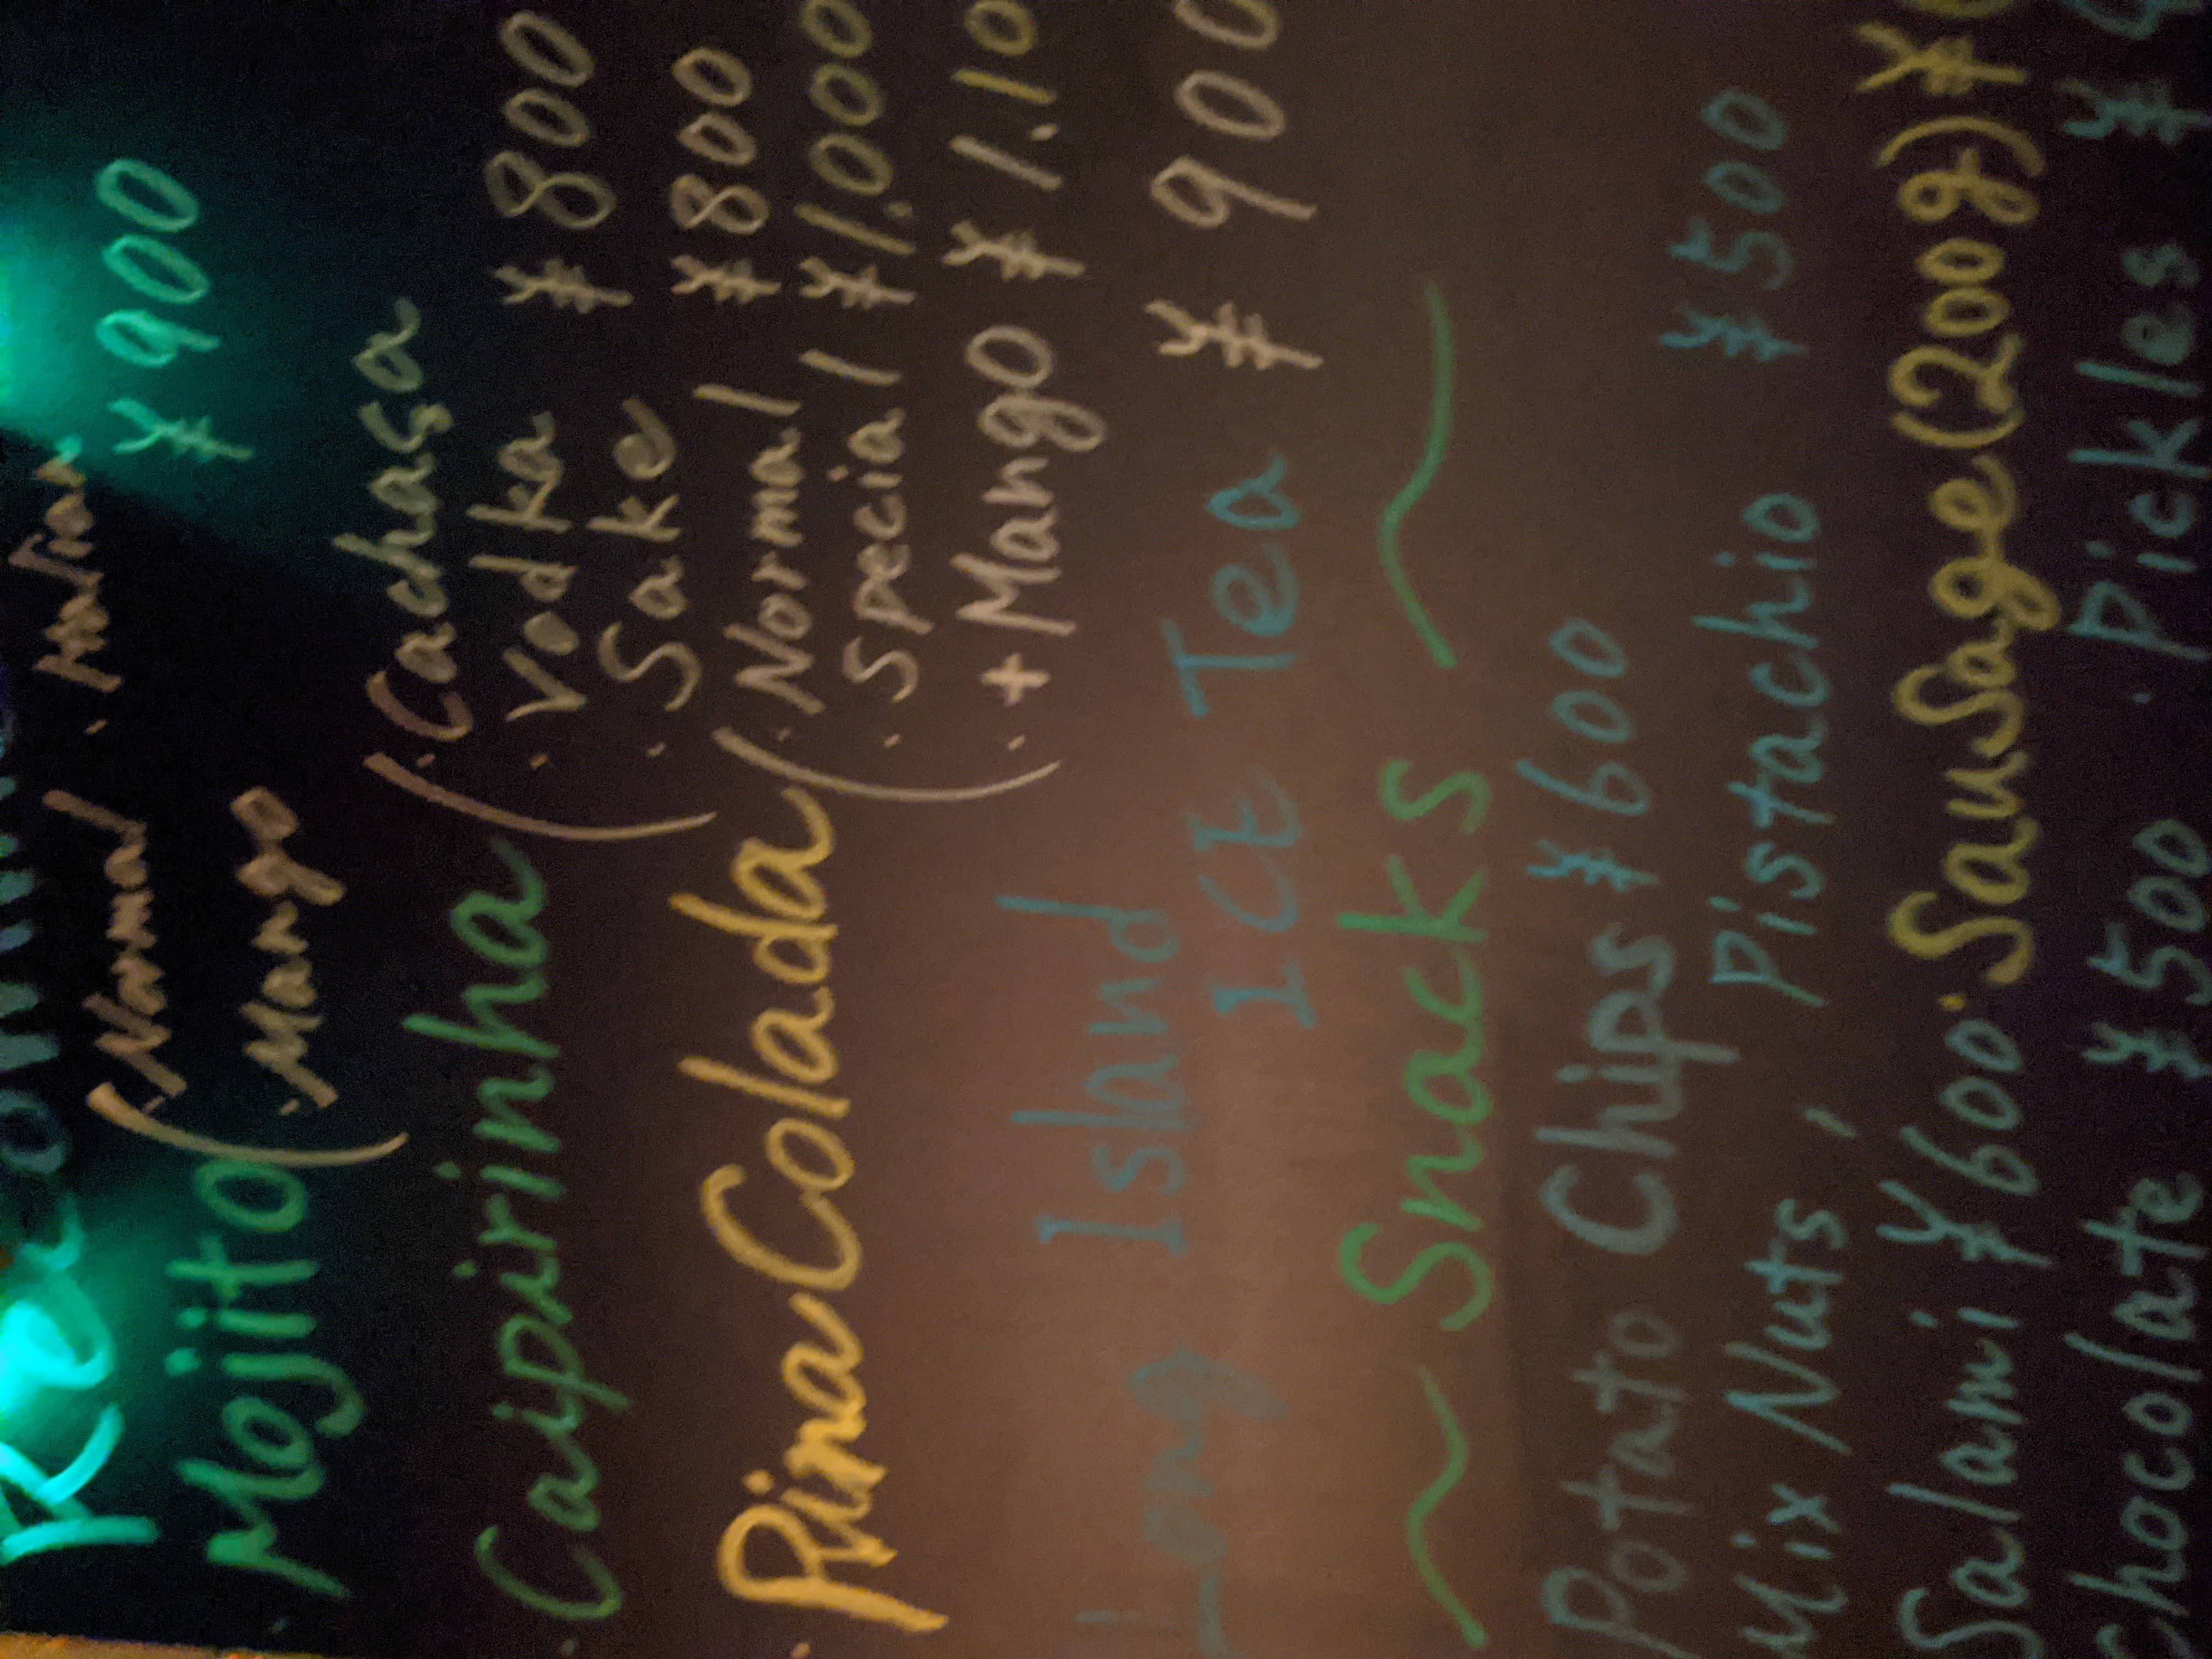 · Normal · Melon
Mojito ( · Mango ¥900
· Caipirinha ( · Cachasa
· Vodka ¥800
· Sake ¥800
· Pina Colada ( · Normal ¥1.000
· Special
· + Mango ¥1.10
Long Island
ICE Tea ¥900
~ Snacks ~
Potato Chips ¥600
Mix Nuts, Pistachio ¥500
Salami ¥600 · SauSage (200g) ¥
chocolate ¥500 · Pickles ¥